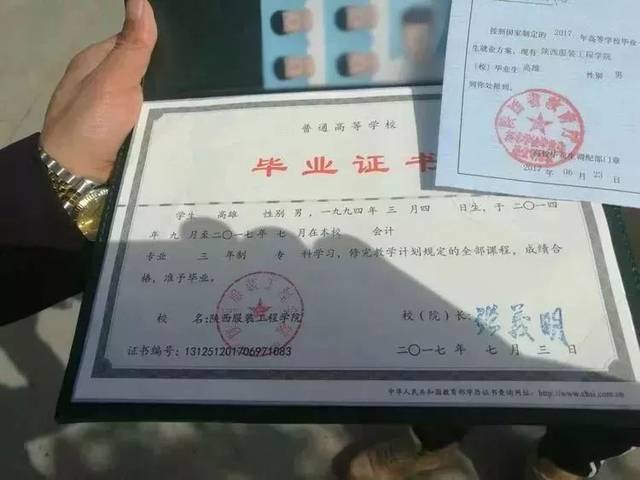 按照国家制定的 2017 年高等学校毕业
生就业方案，现有 陕西服装工程学院
（校）毕业生 高雄 性别 男
陕西省教育厅
高校毕业生调配部门章
2017 年 06 月 23 日
普通高等学校
毕业证书
学生 高雄 性别 男，一九九四年 三 月四 日生，于 二〇一四
年 九 月至二〇一七年 七 月在本校 会计
专业 三 年制 专 科学习，修完教学计划规定的全部课程，成绩合
格，准予毕业。
校 名：陕西服装工程学院
校（院）长：
证书编号：131251201706971083
二〇一七年 七 月 三 日
中华人民共和国教育部学历证书查询网址：http://www.chsi.com.cn